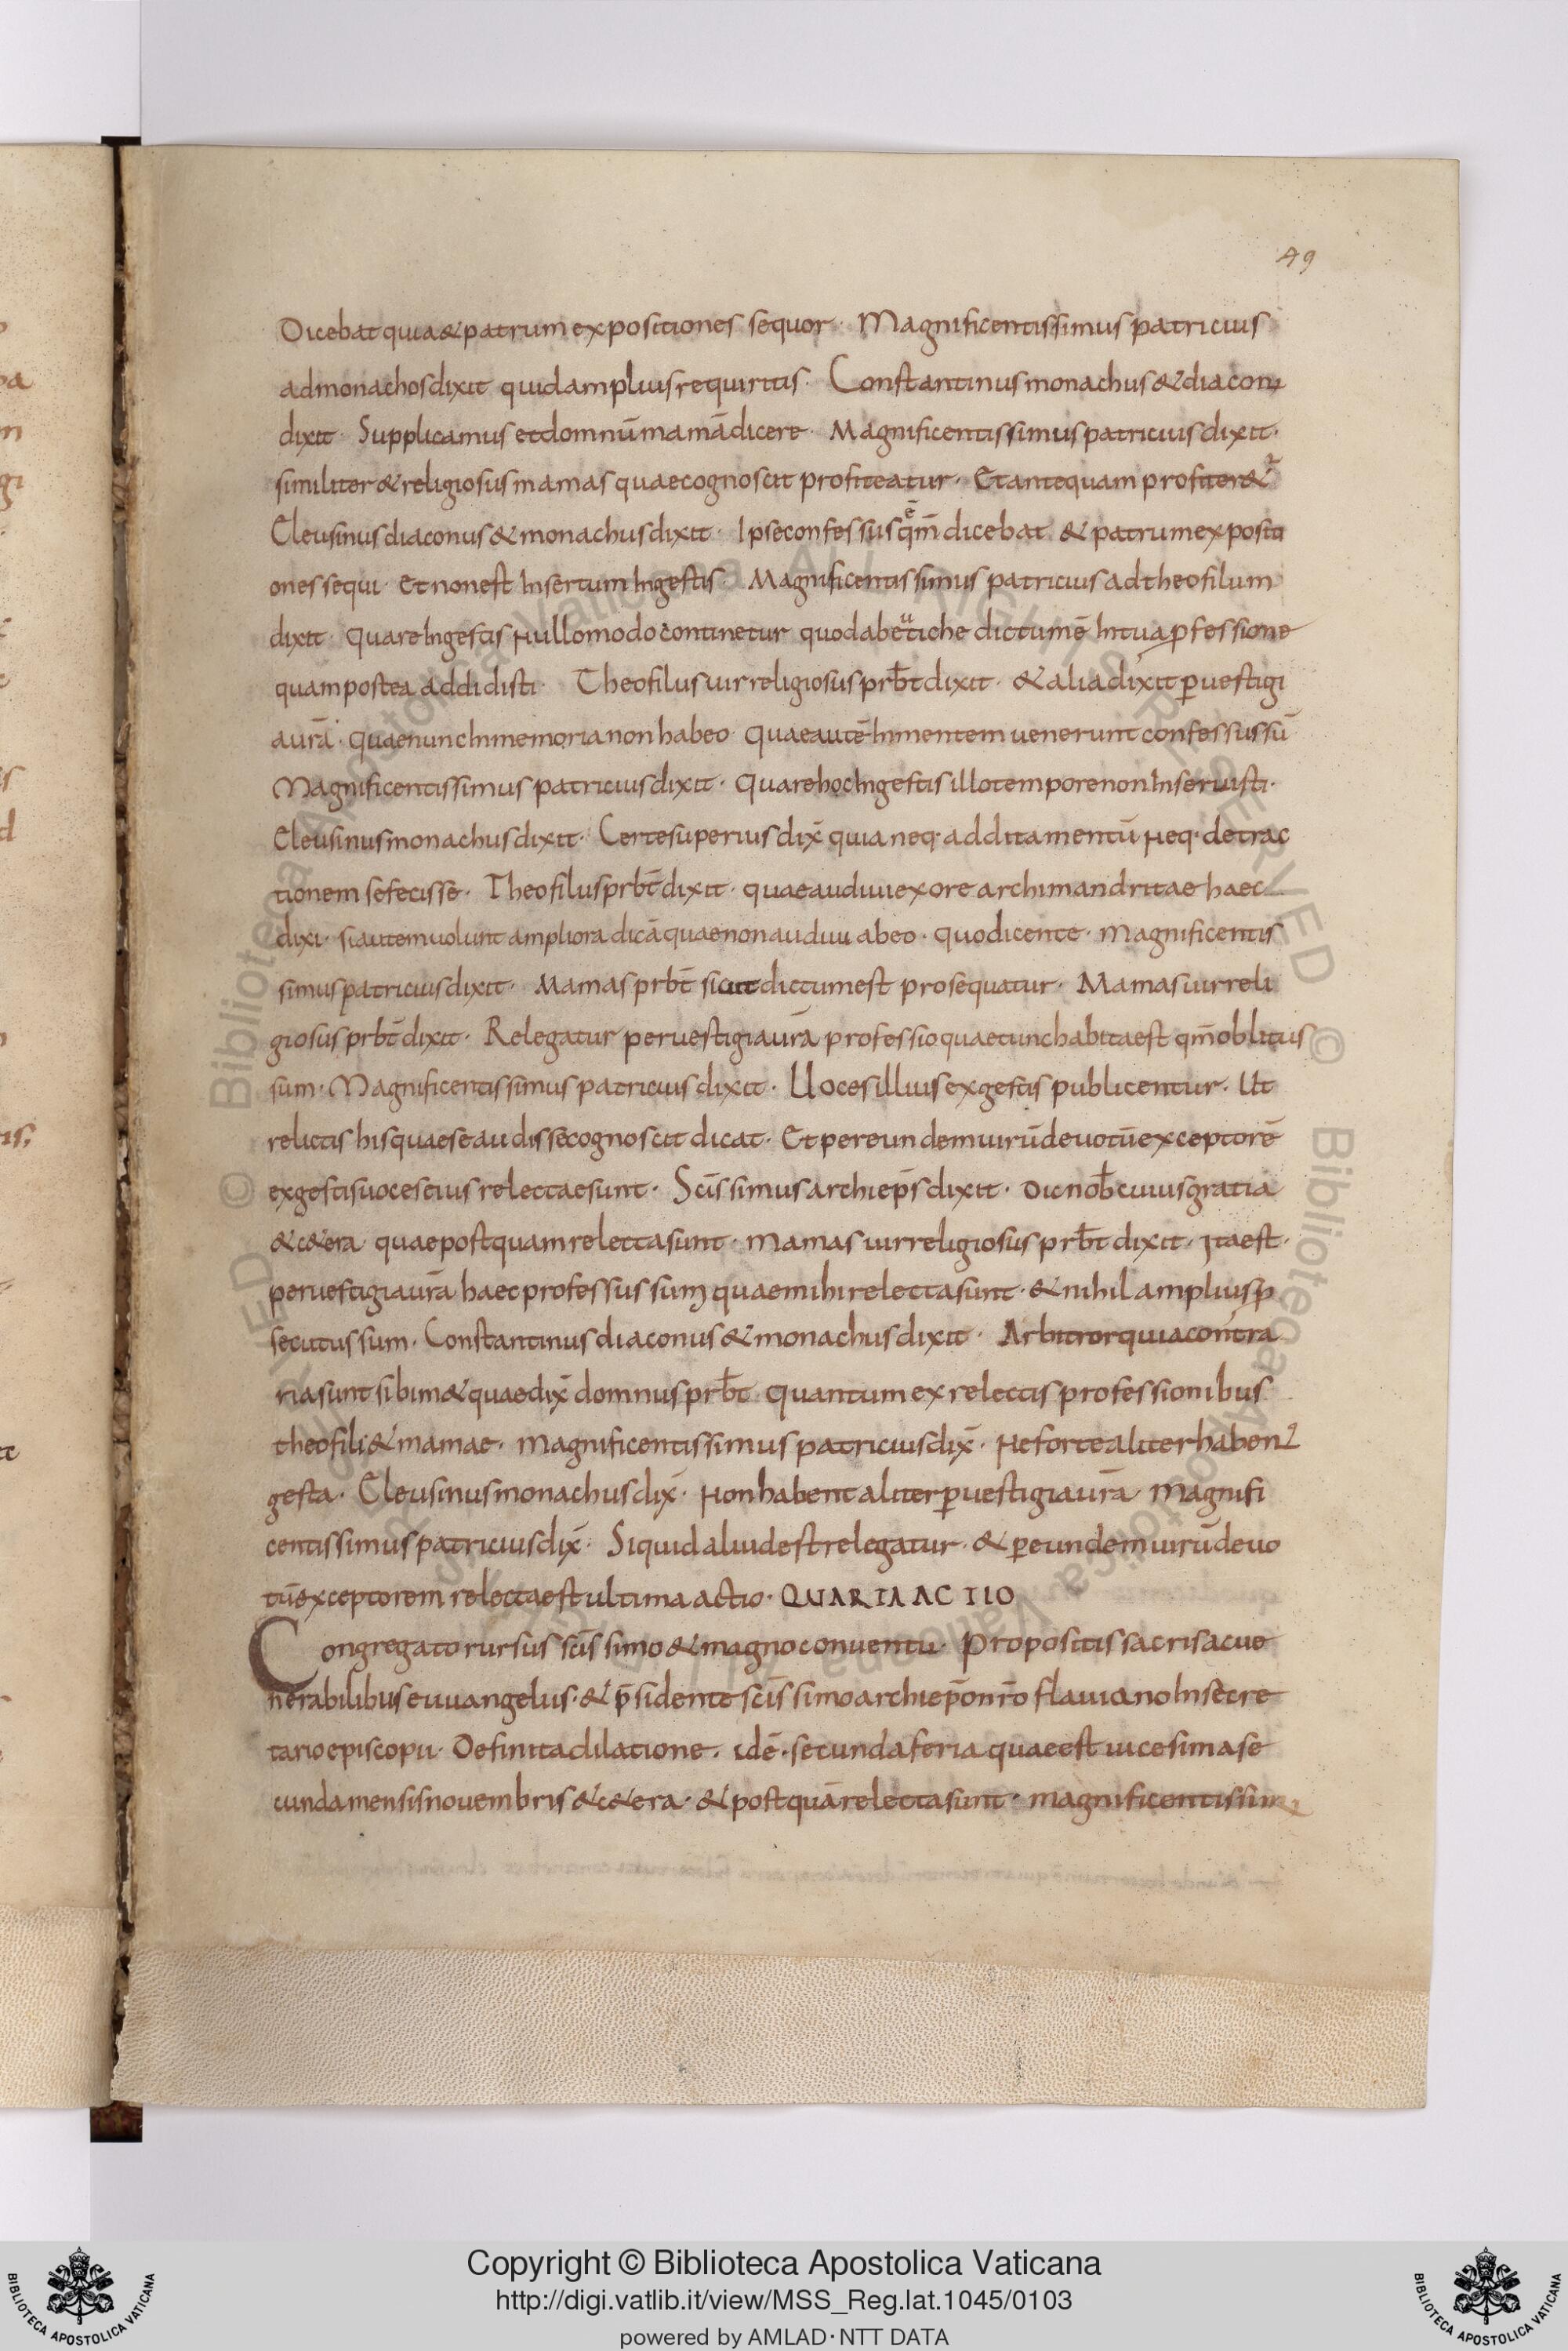 49
Dicebat quia & patrum expositiones sequor · Magnificentissimus patricius
ad monachos dixit quid amplius requiritis · Constantinus monachus & diaconus
dixit · Supplicamus et domnū mamā dicere · Magnificentissimus patricius dixit ·
similiter & religiosus mamas quae cognoscit profiteatur · Et antequam profiter&ur
Eleusinus diaconus & monachus dixit · Ipse confessus ē qm̄ dicebat & patrum expositi
ones sequi · Et non est Insertum Ingestis · Magnificentissimus patricius ad theofilum
dixit · quare Ingestis Nullomodo continetur quod ab eutiche dictum ē In tua professione
quam postea addidisti · Theofilus uir religiosus prb̄t dixit · & alia dixit p̄ uestigi
aurā · quae nunc In memoria non habeo quae autē In mentem uenerunt confessus sū
Magnificentissimus patricius dixit · quare hoc Ingestis illo tempore non Inseruisti ·
Eleusinus monachus dixit · Certe superius dix̄ quia neq· additamentū Neq· detrac
tionem se fecisse · Theofilus prbt̄ dixit · quae audiui ex ore archimandritae haec
dixi · si autem uolunt ampliora dicā quae non audiui abeo · quo dicente · Magnificentis
simus patricius dixit · Mamas prbt̄ sicut dictum est prosequatur · Mamas uir reli
giosus prbt̄ dixit · Relegatur per uestigia urā professio quae tunc habita est qm̄ oblitus
sum · Magnificentissimus patricius dixit · Uoces illius ex gestis publicentur · Ut
relictis his quae se audisse cognoscit dicat · Et per eundem uirū deuotū exceptorē
ex gestis uoces eius relectae sunt · Scīssimus archiep̄s dixit · Dic nob̄ cuius gratia
& c&era quae postquam relecta sunt · Mamas uir religiosus prb̄t dixit · Ita est ·
per uestigia urā haec professus sum quae mihi relecta sunt · & nihil amplius p
secutus sum · Constantinus diaconus & monachus dixit · Arbitror quia contra
ria sunt sibim& quae dix̄ domnus prb̄t quantum ex relectis professionibus
theofili & mamae · Magnificentissimus patricius dix̄ · Ne forte aliter habent
gesta · Eleusinus monachus dix̄ · Non habent aliter p̄ uestigia urā Magnifi
centissimus patricius dix̄ · Si quid aliud est relegatur · & p̄ eundem uirū deuo
tū exceptorem relecta est ultima actio · QUARTA ACTIO
Congregato rursus scīssimo & magno conuentu · Propositis sacris ac ue
nerabilibus euuangeliis · & p̄sidente scīssimo archiep̄o nr̄o flauiano In secre
tario episcopii · Definita dilatione · idē · secunda feria quae est uicesima se
cunda mensis nouembris & c&era · & postquā relecta sunt · magnificentissimus
Copyright © Biblioteca Apostolica Vaticana
http://digi.vatlib.it/view/MSS_Reg.lat.1045/0103
powered by AMLAD·NTT DATA